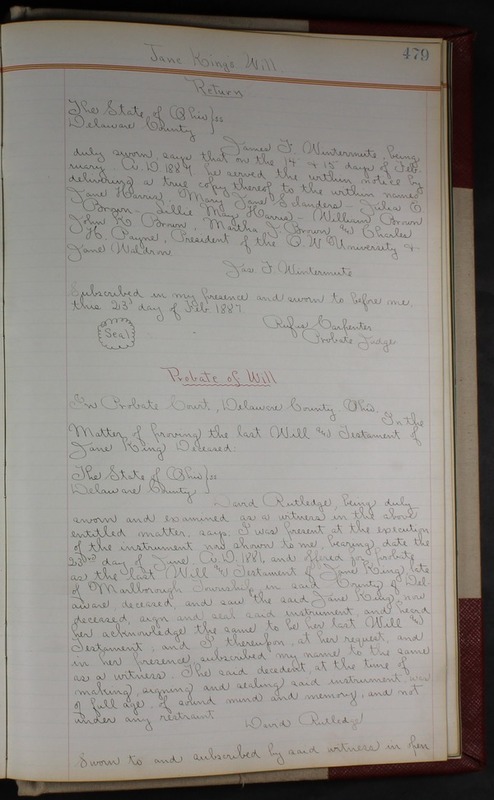 479
Jane Kings Will.
Return
The State of Ohio } ss
Delaware County
James F. Wintermute, being
duly sworn, says that on the 14 & 15 days of Feb-
ruary A.D. 1887, he served the within notice by
delivering a true copy thereof to the within named
Jane Harris, Mary Jane Slanders - Julia E
Brown - Lillie May Harris - William Brown
John K. Brown, Martha J Brown and Charles
H. Payne, President of the O. W. University &
Jane Waldron
Jas F Wintermute
Subscribed in my presence and sworn to before me
this 23d day of Feb 1887.
Rufus Carpenter
Probate Judge
Seal
Probate of Will
In Probate Court, Delaware County Ohio.
In the
Matter of proving the last Will and Testament of
Jane King Deceased.
The State of Ohio } ss
Delaware County
David Rutledge, being duly
sworn and examined as a witness in the above
entitled matter, says: I was present at the execution
of the instrument now shown to me, bearing date the
23rd day of June A.D. 1881, and offered for probate
as the last Will and Testament of Jane King late
of Marlborough Township, in said County of Del-
aware, deceased, and saw the said Jane King, now
deceased, sign and seal said instrument, and heard
her acknowledge the same to be her last Will and
Testament, and I thereupon, at her request, and
in her presence, subscribed my name to the same
as a witness. The said decedent, at the time of
making, signing and sealing said instrument, was
of full age, of sound mind and memory, and not
under any restraint
David Rutledge
Sworn to and subscribed by said witness in open